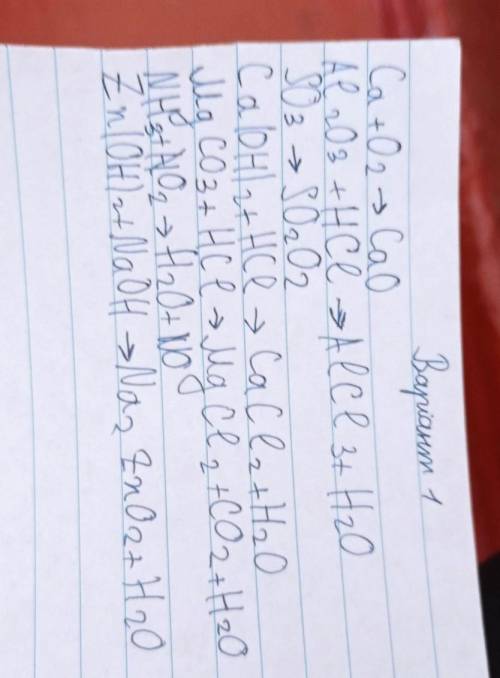 Варіант 1
Ca + O2 → CaO
Al2O3 + HCl → AlCl3 + H2O
SO3 → SO2O2
Ca(OH)2 + HCl → CaCl2 + H2O
MgCO3 + HCl → MgCl2 + CO2 + H2O
NH3 + NO2 → H2O + NO
Zn(OH)2 + NaOH → Na2ZnO2 + H2O